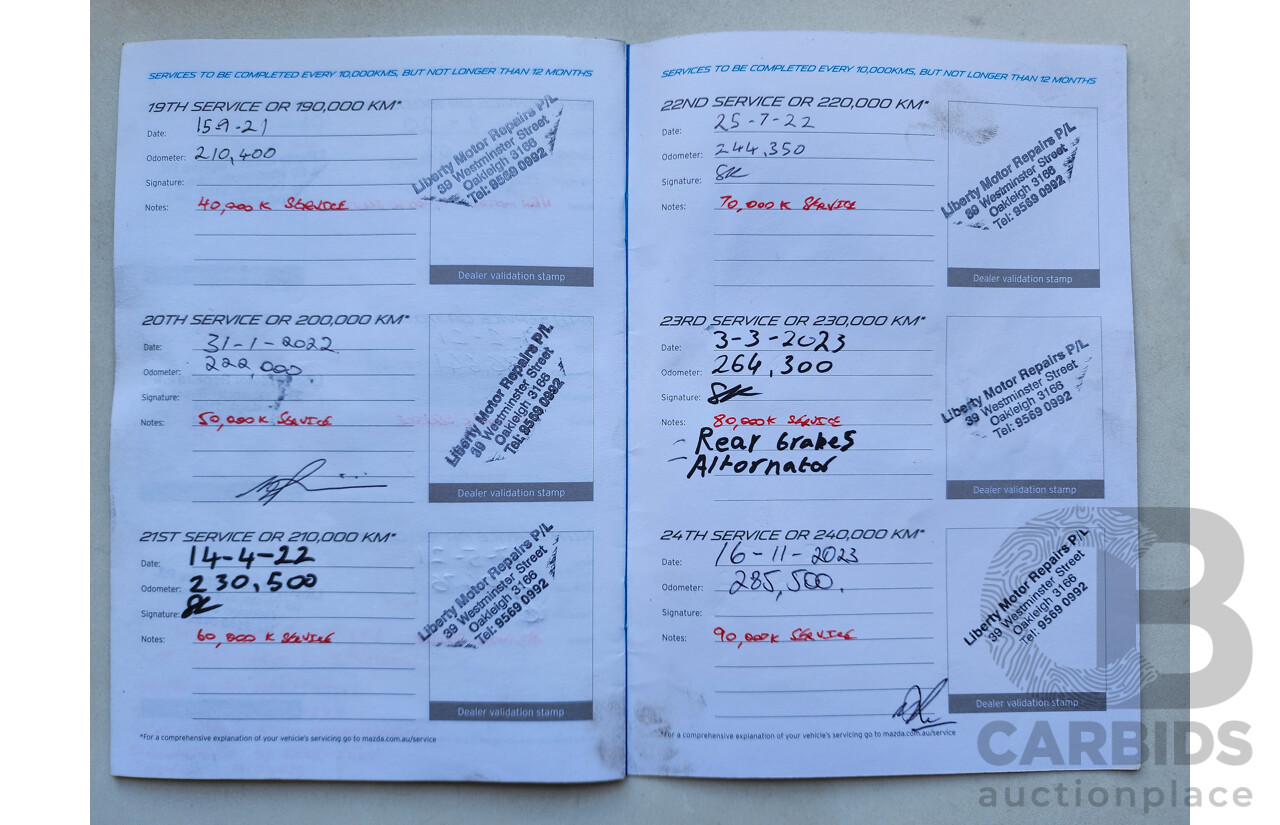 SERVICES TO BE COMPLETED EVERY 10,000KMS, BUT NOT LONGER THAN 12 MONTHS
19TH SERVICE OR 190,000 KM*
Date: 15-9-21
Odometer: 210,400
Signature:
Notes: 40,000 K SERVICE
Liberty Motor Repairs P/L
39 Westminster Street
Oakleigh 3166
Tel: 9569 0992
Dealer validation stamp
20TH SERVICE OR 200,000 KM*
Date: 31-1-2022
Odometer: 222,000
Signature:
Notes: 50,000 K SERVICE
Liberty Motor Repairs P/L
39 Westminster Street
Oakleigh 3166
Tel: 9569 0992
Dealer validation stamp
21ST SERVICE OR 210,000 KM*
Date: 14-4-22
Odometer: 230,500
Signature:
Notes: 60,000 K SERVICE
Liberty Motor Repairs P/L
39 Westminster Street
Oakleigh 3166
Tel: 9569 0992
Dealer validation stamp
*For a comprehensive explanation of your vehicle's servicing go to mazda.com.au/service
SERVICES TO BE COMPLETED EVERY 10,000KMS, BUT NOT LONGER THAN 12 MONTHS
22ND SERVICE OR 220,000 KM*
Date: 25-7-22
Odometer: 244,350
Signature:
Notes: 70,000 K SERVICE
Liberty Motor Repairs P/L
39 Westminster Street
Oakleigh 3166
Tel: 9569 0992
Dealer validation stamp
23RD SERVICE OR 230,000 KM*
Date: 3-3-2023
Odometer: 264,300
Signature:
Notes: 80,000 K SERVICE
- Rear brakes
- Alternator
Liberty Motor Repairs P/L
39 Westminster Street
Oakleigh 3166
Tel: 9569 0992
Dealer validation stamp
24TH SERVICE OR 240,000 KM*
Date: 16-11-2023
Odometer: 285,500.
Signature:
Notes: 90,000 K SERVICE
Liberty Motor Repairs P/L
39 Westminster Street
Oakleigh 3166
Tel: 9569 0992
Dealer validation stamp
*For a comprehensive explanation of your vehicle's servicing go to mazda.com.au/service
CARBIDS
auctionplace